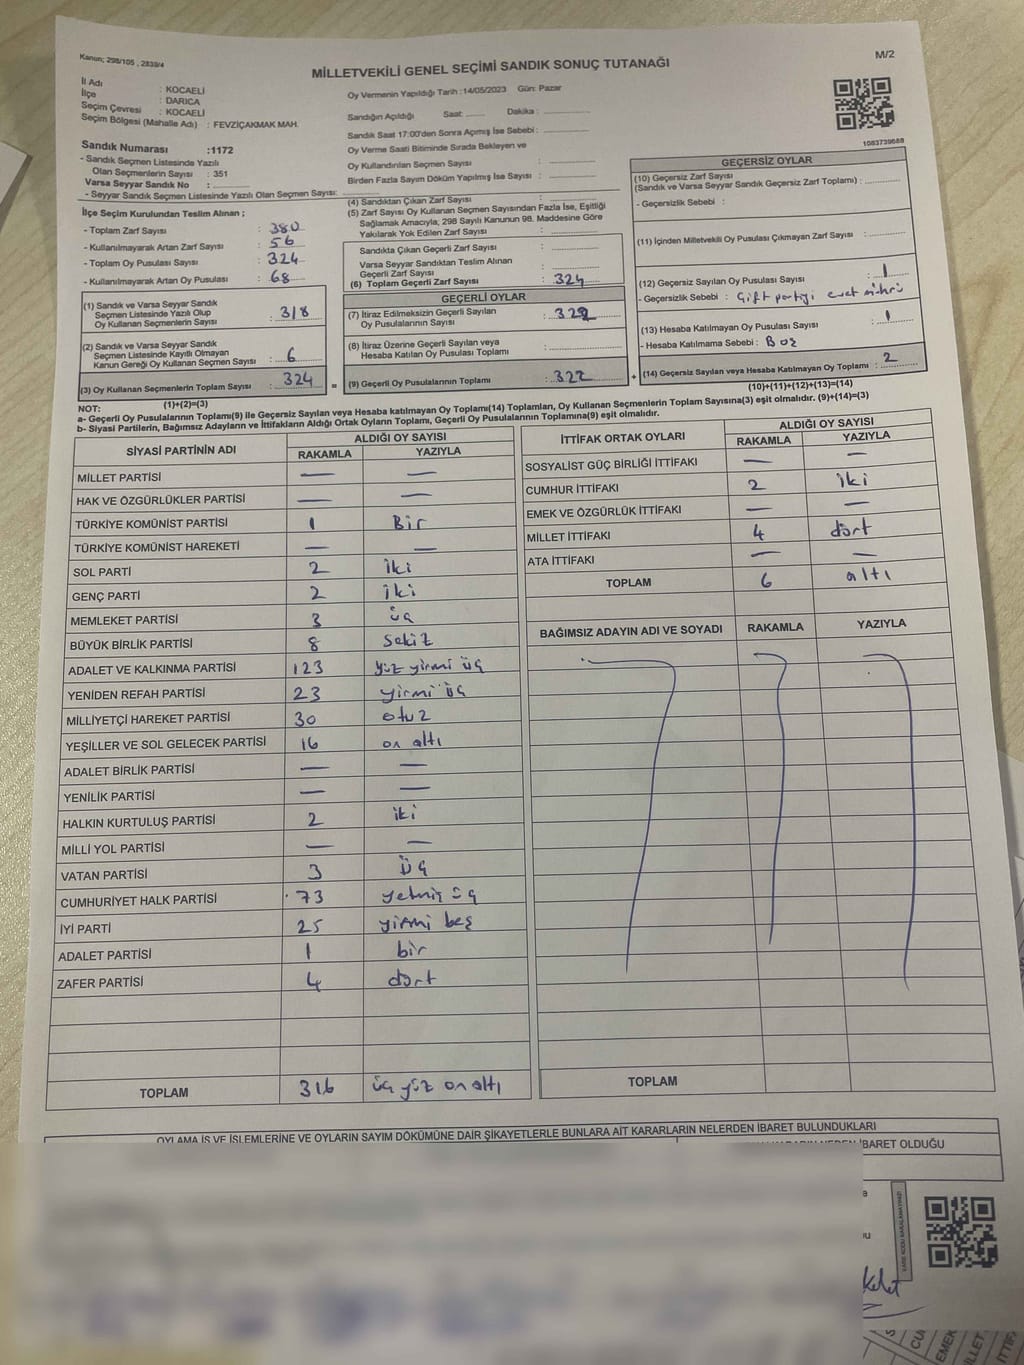 Kanun; 298/105 , 2839/4
M/2
MİLLETVEKİLİ GENEL SEÇİMİ SANDIK SONUÇ TUTANAĞI
İl Adı : KOCAELİ
İlçe : DARICA
Seçim Çevresi : KOCAELİ
Seçim Bölgesi (Mahalle Adı) : FEVZİÇAKMAK MAH.
Sandık Numarası :1172
- Sandık Seçmen Listesinde Yazılı
Olan Seçmenlerin Sayısı : 351
Varsa Seyyar Sandık No :
- Seyyar Sandık Seçmen Listesinde Yazılı Olan Seçmen Sayısı:
Oy Vermenin Yapıldığı Tarih :14/05/2023 Gün: Pazar
Sandığın Açıldığı Saat: Dakika :
Sandık Saat 17:00'den Sonra Açmış İse Sebebi :
Oy Verme Saati Bitiminde Sırada Bekleyen ve
Oy Kullandırılan Seçmen Sayısı :
Birden Fazla Sayım Döküm Yapılmış İse Sayısı :
1083739688
İlçe Seçim Kurulundan Teslim Alınan ;
- Toplam Zarf Sayısı : 380
- Kullanılmayarak Artan Zarf Sayısı : 56
- Toplam Oy Pusulası Sayısı : 324
- Kullanılmayarak Artan Oy Pusulası : 68
(1) Sandık ve Varsa Seyyar Sandık
Seçmen Listesinde Yazılı Olup
Oy Kullanan Seçmenlerin Sayısı : 318
(2) Sandık ve Varsa Seyyar Sandık
Seçmen Listesinde Kayıtlı Olmayan
Kanun Gereği Oy Kullanan Seçmen Sayısı : 6
(3) Oy Kullanan Seçmenlerin Toplam Sayısı : 324
(4) Sandıktan Çıkan Zarf Sayısı :
(5) Zarf Sayısı Oy Kullanan Seçmen Sayısından Fazla İse, Eşitliği
Sağlamak Amacıyla; 298 Sayılı Kanunun 98. Maddesine Göre
Yakılarak Yok Edilen Zarf Sayısı :
Sandıkta Çıkan Geçerli Zarf Sayısı :
Varsa Seyyar Sandıktan Teslim Alınan
Geçerli Zarf Sayısı :
(6) Toplam Geçerli Zarf Sayısı : 324
GEÇERLİ OYLAR
(7) İtiraz Edilmeksizin Geçerli Sayılan
Oy Pusulalarının Sayısı : 322
(8) İtiraz Üzerine Geçerli Sayılan veya
Hesaba Katılan Oy Pusulası Toplamı :
= (9) Geçerli Oy Pusulalarının Toplamı : 322 +
GEÇERSİZ OYLAR
(10) Geçersiz Zarf Sayısı
(Sandık ve Varsa Seyyar Sandık Geçersiz Zarf Toplamı) :
- Geçersizlik Sebebi :
(11) İçinden Milletvekili Oy Pusulası Çıkmayan Zarf Sayısı :
(12) Geçersiz Sayılan Oy Pusulası Sayısı : 1
- Geçersizlik Sebebi : Çift partiyi evet mührü
(13) Hesaba Katılmayan Oy Pusulası Sayısı : 1
- Hesaba Katılmama Sebebi : Boş
(14) Geçersiz Sayılan veya Hesaba Katılmayan Oy Toplamı : 2
(1)+(2)=(3)
(10)+(11)+(12)+(13)=(14)
NOT:
a- Geçerli Oy Pusulalarının Toplamı(9) ile Geçersiz Sayılan veya Hesaba katılmayan Oy Toplamı(14) Toplamları, Oy Kullanan Seçmenlerin Toplam Sayısına(3) eşit olmalıdır. (9)+(14)=(3)
b- Siyasi Partilerin, Bağımsız Adayların ve İttifakların Aldığı Ortak Oyların Toplamı, Geçerli Oy Pusulalarının Toplamına(9) eşit olmalıdır.
SİYASİ PARTİNİN ADI ALDIĞI OY SAYISI
RAKAMLA YAZIYLA
MİLLET PARTİSİ — —
HAK VE ÖZGÜRLÜKLER PARTİSİ — —
TÜRKİYE KOMÜNİST PARTİSİ 1 Bir
TÜRKİYE KOMÜNİST HAREKETİ — —
SOL PARTİ 2 iki
GENÇ PARTİ 2 iki
MEMLEKET PARTİSİ 3 üç
BÜYÜK BİRLİK PARTİSİ 8 sekiz
ADALET VE KALKINMA PARTİSİ 123 yüz yirmi üç
YENİDEN REFAH PARTİSİ 23 yirmi üç
MİLLİYETÇİ HAREKET PARTİSİ 30 otuz
YEŞİLLER VE SOL GELECEK PARTİSİ 16 on altı
ADALET BİRLİK PARTİSİ — —
YENİLİK PARTİSİ — —
HALKIN KURTULUŞ PARTİSİ 2 iki
MİLLİ YOL PARTİSİ — —
VATAN PARTİSİ 3 üç
CUMHURİYET HALK PARTİSİ 73 yetmiş üç
İYİ PARTİ 25 yirmi beş
ADALET PARTİSİ 1 bir
ZAFER PARTİSİ 4 dört
TOPLAM 316 üç yüz on altı
İTTİFAK ORTAK OYLARI ALDIĞI OY SAYISI
RAKAMLA YAZIYLA
SOSYALİST GÜÇ BİRLİĞİ İTTİFAKI — —
CUMHUR İTTİFAKI 2 iki
EMEK VE ÖZGÜRLÜK İTTİFAKI — —
MİLLET İTTİFAKI 4 dört
ATA İTTİFAKI — —
TOPLAM 6 altı
BAĞIMSIZ ADAYIN ADI VE SOYADI RAKAMLA YAZIYLA
TOPLAM
OYLAMA İŞ VE İŞLEMLERİNE VE OYLARIN SAYIM DÖKÜMÜNE DAİR ŞİKAYETLERLE BUNLARA AİT KARARLARIN NELERDEN İBARET BULUNDUKLARI
İBARET OLDUĞU